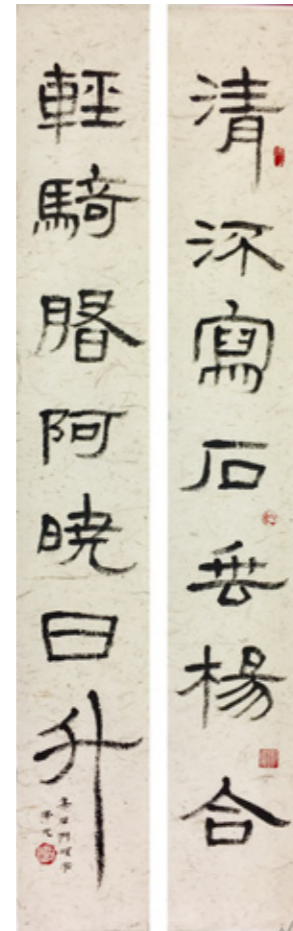 清寫石垂楊合
輕騎阿曉日升